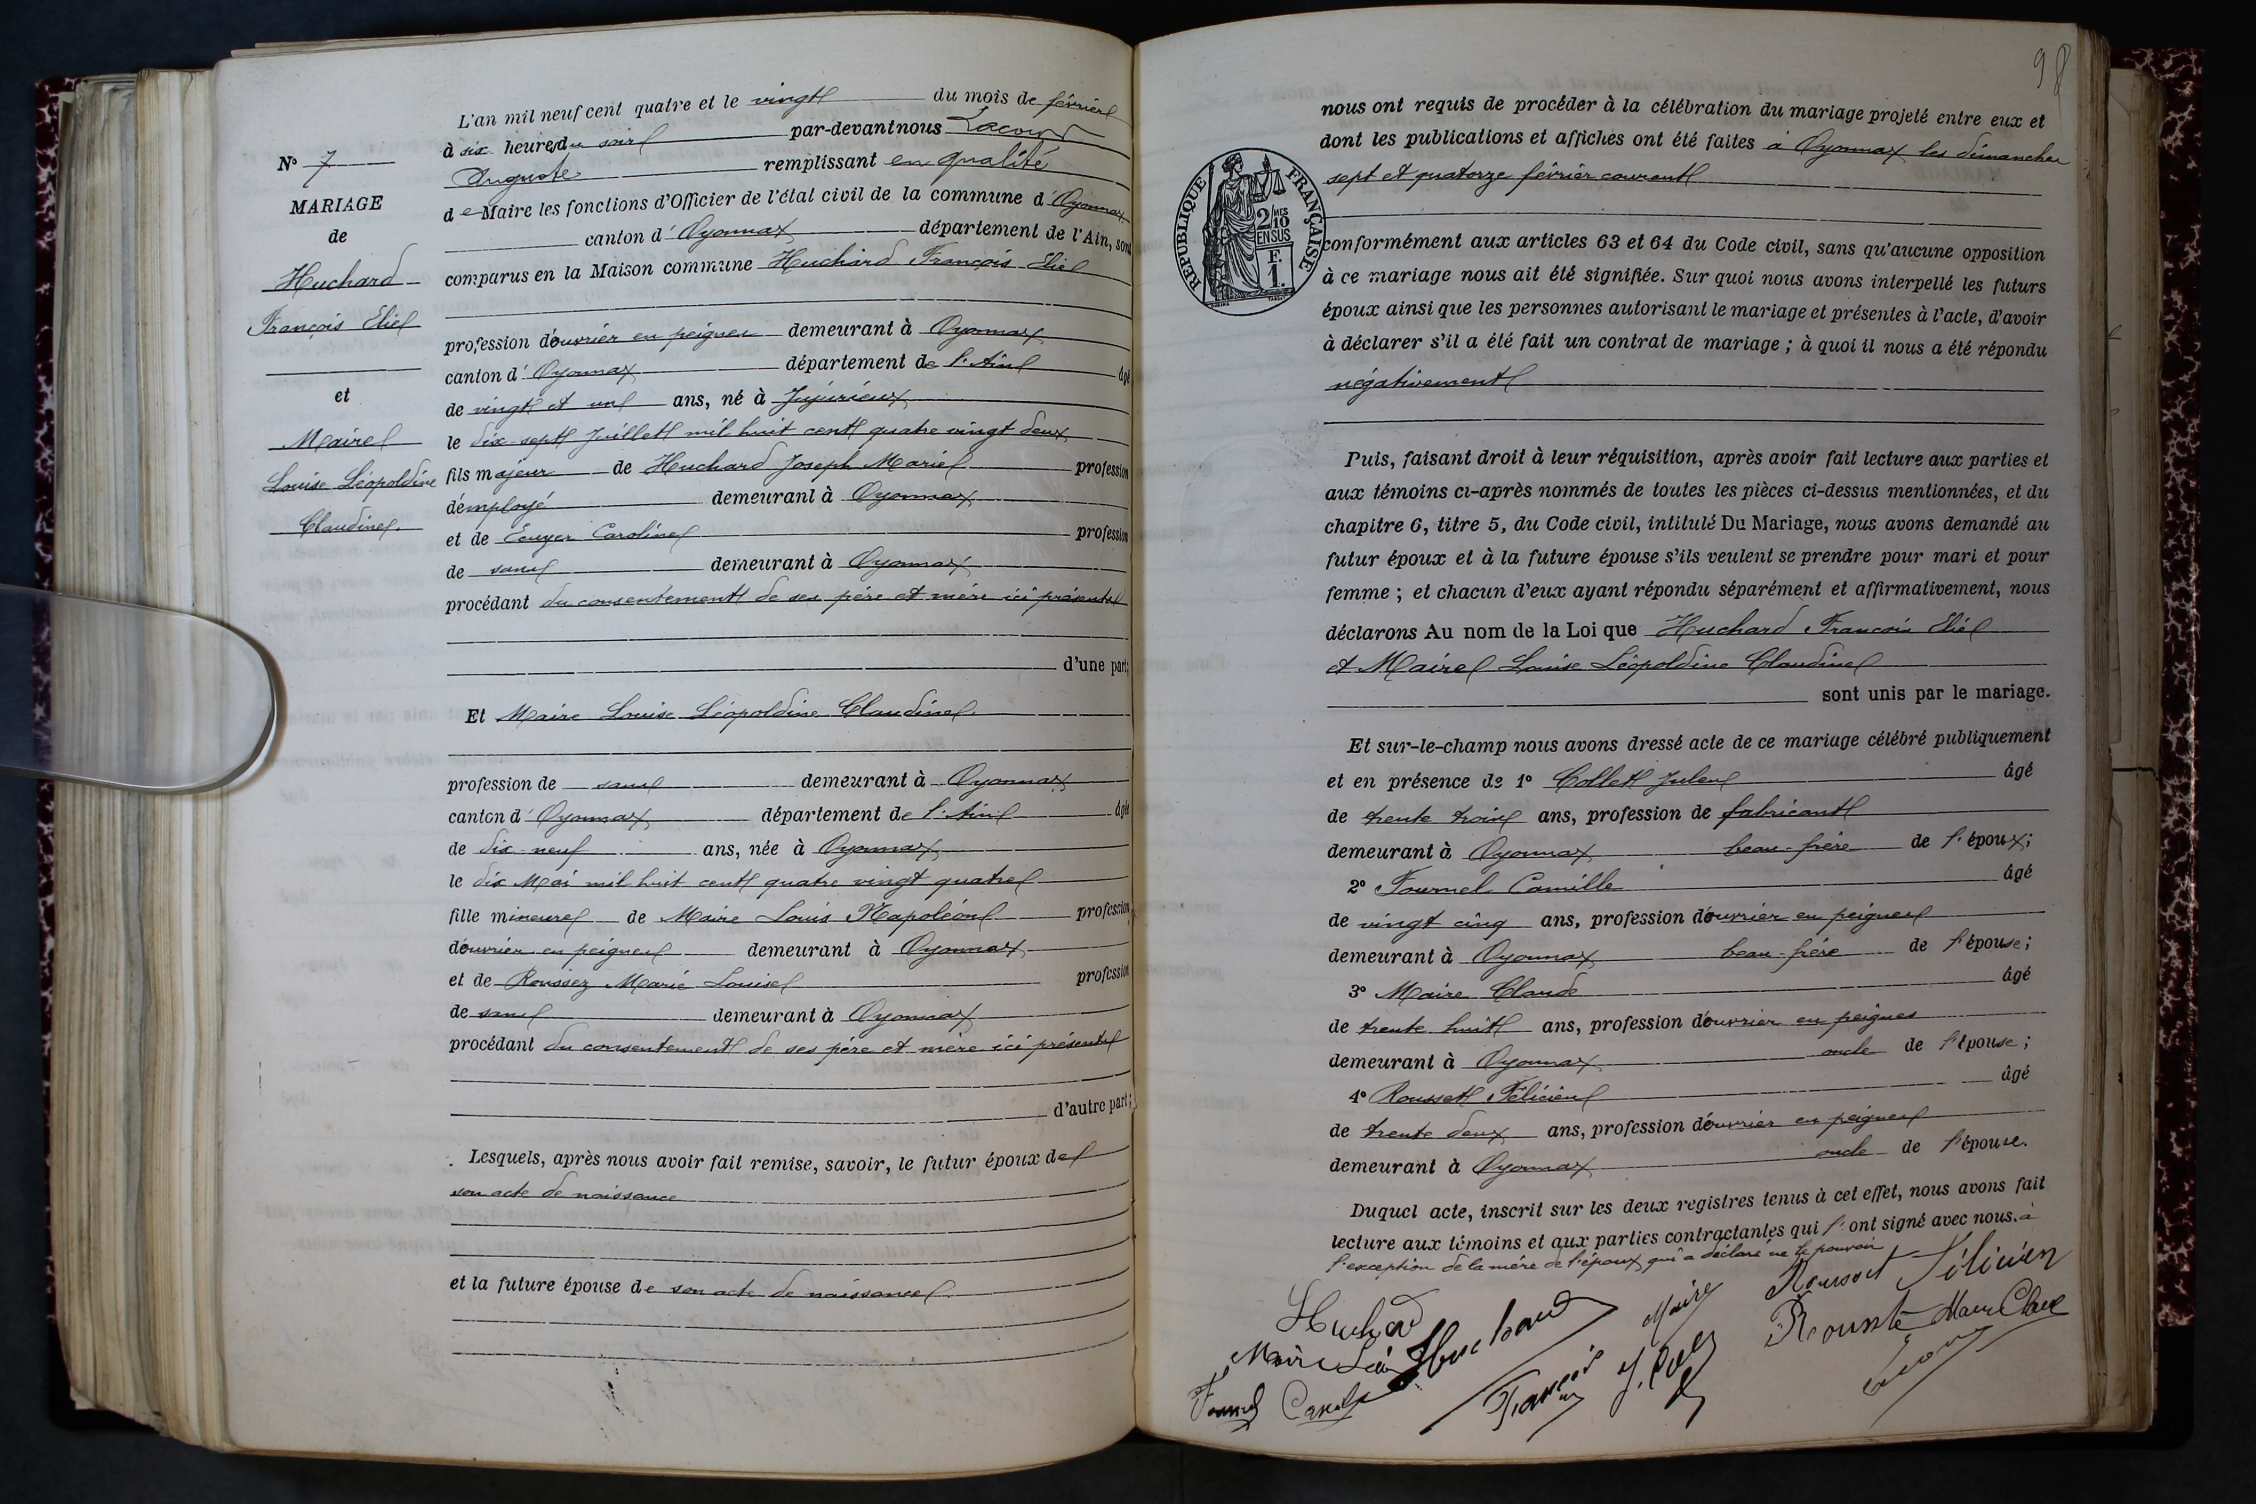 L'an mil neuf cent quatre et le vingt du mois de février
à six heures du soir par-devant nous Lacour
Auguste remplissant en qualité
de Maire les fonctions d'Officier de l'état civil de la commune d'Oyonnax
canton d'Oyonnax département de l'Ain, sont
comparus en la Maison commune Huchard François Eliel
profession d'ouvrier en peignes demeurant à Oyonnax
canton d'Oyonnax département de l'Ain âgé
de vingt et un ans, né à Jujurieux
le dix-sept Juillet mil huit cent quatre vingt deux
fils majeur de Huchard Joseph Marie profession
d'employé demeurant à Oyonnax
et de Ecuyer Caroline profession
de sans demeurant à Oyonnax
procédant du consentement de ses père et mère ici présents
d'une part;
Et Maire Louise Léopoldine Claudine
profession de sans demeurant à Oyonnax
canton d'Oyonnax département de l'Ain âgée
de dix-neuf ans, née à Oyonnax
le dix Mai mil huit cent quatre vingt quatre
fille mineure de Maire Louis Napoléon profession
d'ouvrier en peignes demeurant à Oyonnax
et de Roussez Marie Louise profession
de sans demeurant à Oyonnax
procédant du consentement de ses père et mère ici présents
d'autre part;
Lesquels, après nous avoir fait remise, savoir, le futur époux de
son acte de naissance
et la future épouse de son acte de naissance.
No 7
MARIAGE
de
Huchard
François Eliel
et
Maire
Louise Léopoldine
Claudine.
98
nous ont requis de procéder à la célébration du mariage projeté entre eux et
dont les publications et affiches ont été faites à Oyonnax les dimanches
sept et quatorze février courant
conformément aux articles 63 et 64 du Code civil, sans qu'aucune opposition
à ce mariage nous ait été signifiée. Sur quoi nous avons interpellé les futurs
époux ainsi que les personnes autorisant le mariage et présentes à l'acte, d'avoir
à déclarer s'il a été fait un contrat de mariage ; à quoi il nous a été répondu
négativement
Puis, faisant droit à leur réquisition, après avoir fait lecture aux parties et
aux témoins ci-après nommés de toutes les pièces ci-dessus mentionnées, et du
chapitre 6, titre 5, du Code civil, intitulé Du Mariage, nous avons demandé au
futur époux et à la future épouse s'ils veulent se prendre pour mari et pour
femme ; et chacun d'eux ayant répondu séparément et affirmativement, nous
déclarons Au nom de la Loi que Huchard François Eliel
et Maire Louise Léopoldine Claudine
sont unis par le mariage.
Et sur-le-champ nous avons dressé acte de ce mariage célébré publiquement
et en présence de 1° Collet Jules âgé
de trente trois ans, profession de fabricant
demeurant à Oyonnax beau-frère de l'époux;
2° Fournel Camille âgé
de vingt cinq ans, profession d'ouvrier en peignes
demeurant à Oyonnax beau-frère de l'épouse;
3° Maire Claude âgé
de trente huit ans, profession d'ouvrier en peignes
demeurant à Oyonnax oncle de l'épouse;
4° Rousset Félicien âgé
de trente deux ans, profession d'ouvrier en peignes
demeurant à Oyonnax oncle de l'épouse.
Duquel acte, inscrit sur les deux registres tenus à cet effet, nous avons fait
lecture aux témoins et aux parties contractantes qui l'ont signé avec nous. à
l'exception de la mère de l'époux qui a déclaré ne le pouvoir
Rousset Félicien
Huchard Maire
Maire Huchard François
REPUBLIQUE FRANÇAISE
2/10 MES
EN SUS
F.
1.